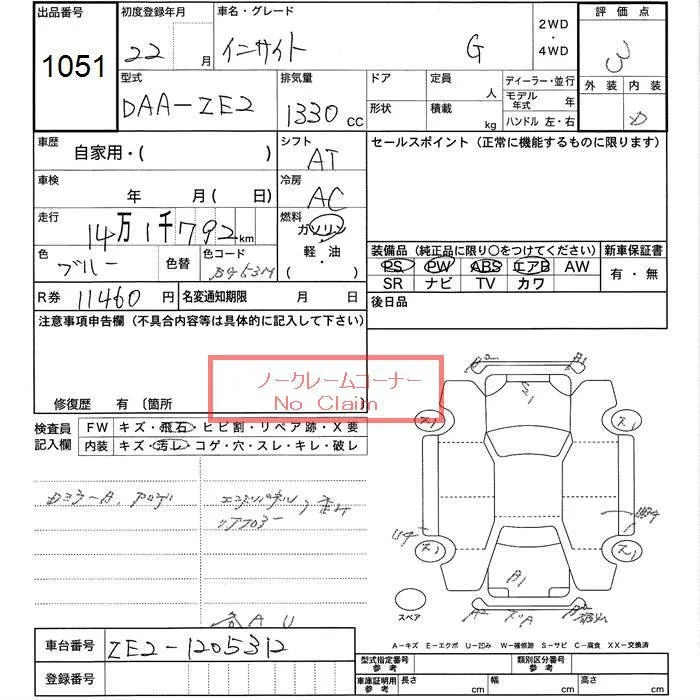 出品番号
1051
初度登録年月
22 月
車名・グレード
インサイト G
2WD
・
4WD
評価点
3
外装 内装
D
型式
DAA-ZE2
排気量
1330 cc
ドア
定員
人
形状
積載
kg
ディーラー・並行
モデル年式 年
ハンドル 左・右
車歴
自家用・( )
シフト
AT
セールスポイント(正常に機能するものに限ります)
車検
年 月( 日)
冷房
AC
走行
14万1千792km
燃料
ガソリン
・
軽・油
( )
色
ブルー
色替
色コード
B453M
装備品(純正品に限り○をつけてください)
PS PW ABS エアB AW
SR ナビ TV カワ
新車保証書
有・無
R券 11460 円
名変通知期限 月 日
後日品
注意事項申告欄(不具合内容等は具体的に記入して下さい)
ノークレームコーナー
No Claim
修復歴 有 〔箇所
検査員
記入欄
FW キズ・飛石・ヒビ割・リペア跡・X要
内装 キズ・汚レ・コゲ・穴・スレ・キレ・破レ
A2
B2
S1
ス1
ス1
U4
ス1
ス1
B1
A2
スペア
A-キズ E-エクボ U-凹み W-補修跡 S-サビ C-腐食 XX-交換済
車台番号 ZE2-1205312
登録番号
型式指定番号
参考
類別区分番号
参考
車庫証明用
参考
長さ cm
幅 cm
高さ cm